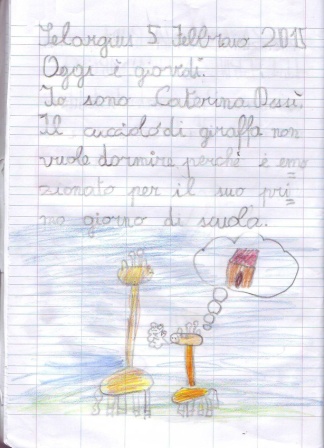 Selargius 5 Febbraio 2015
Oggi è giovedì.
Io sono Caterina Dessì.
Il cucciolo di giraffa non
vuole dormire perché è emo
zionato per il suo pri
mo giorno di scuola.